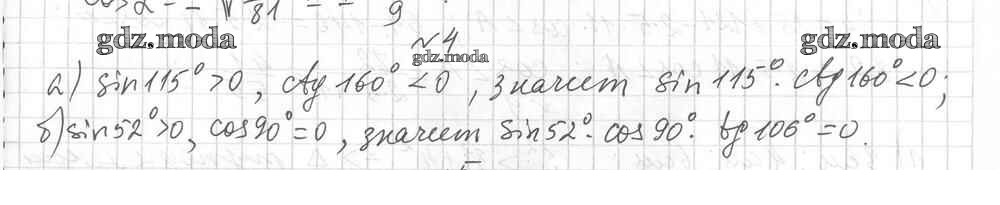 cos α = - √ 81 = - 9
gdz.moda
№4
gdz.moda
gdz.moda
а) sin 115° > 0, ctg 160° < 0, значит sin 115° · ctg 160° < 0;
б) sin 52° > 0, cos 90° = 0, значит sin 52° · cos 90° · tg 106° = 0.